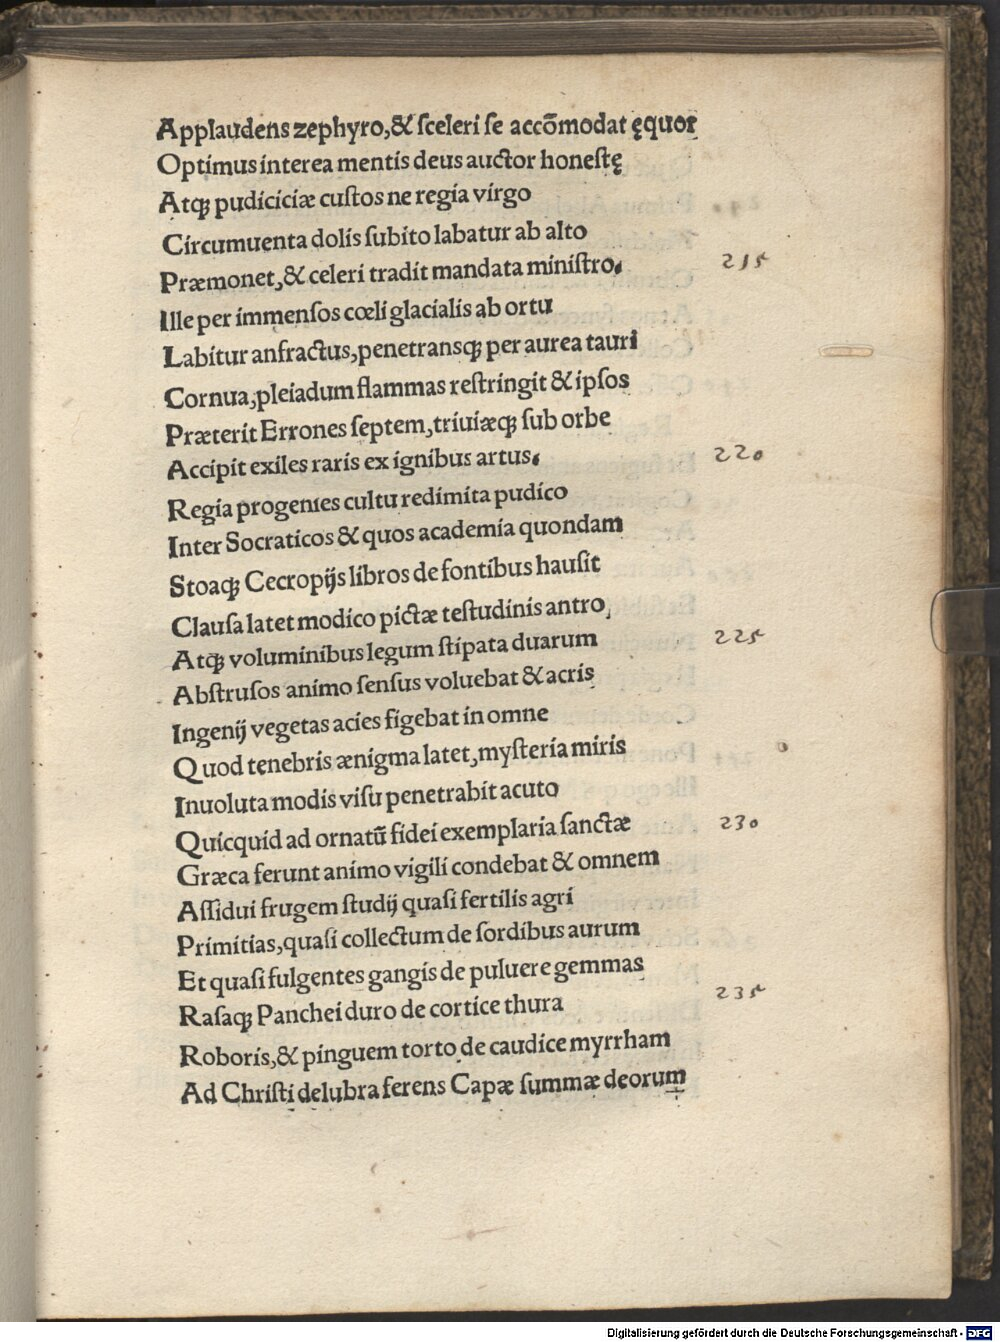 Applaudens zephyro,& ſceleri ſe accōmodat ęquor
Optimus interea mentis deus auctor honeſtę
Atqꝫ pudiciciæ cuſtos ne regia virgo
Circumuenta dolis ſubito labatur ab alto
Præmonet,& celeri tradit mandata miniſtro. 215
Ille per immenſos cœli glacialis ab ortu
Labitur anfractus,penetransqꝫ per aurea tauri
Cornua,pleiadum flammas reſtringit & ipſos
Præterit Errones ſeptem,triuiæqꝫ ſub orbe
Accipit exiles raris ex ignibus artus. 220
Regia progenies cultu redimita pudico
Inter Socraticos & quos academia quondam
Stoaqꝫ Cecropijs libros de fontibus hauſit
Clauſa latet modico pictæ teſtudinis antro,
Atqꝫ voluminibus legum ſtipata duarum 225
Abſtruſos animo ſenſus voluebat & acris
Ingenij vegetas acies figebat in omne
Quod tenebris ænigma latet,myſteria miris
Inuoluta modis viſu penetrabit acuto
Quicquid ad ornatū fidei exemplaria ſanctæ 230
Græca ferunt animo vigili condebat & omnem
Aſſidui frugem ſtudij quaſi fertilis agri
Primitias,quaſi collectum de ſordibus aurum
Et quaſi fulgentes gangis de puluere gemmas
Raſaqꝫ Panchei duro de cortice thura 235
Roboris,& pinguem torto de caudice myrrham
Ad Chriſti delubra ferens Capæ ſummæ deorum
Digitalisierung gefördert durch die Deutsche Forschungsgemeinschaft - DFG